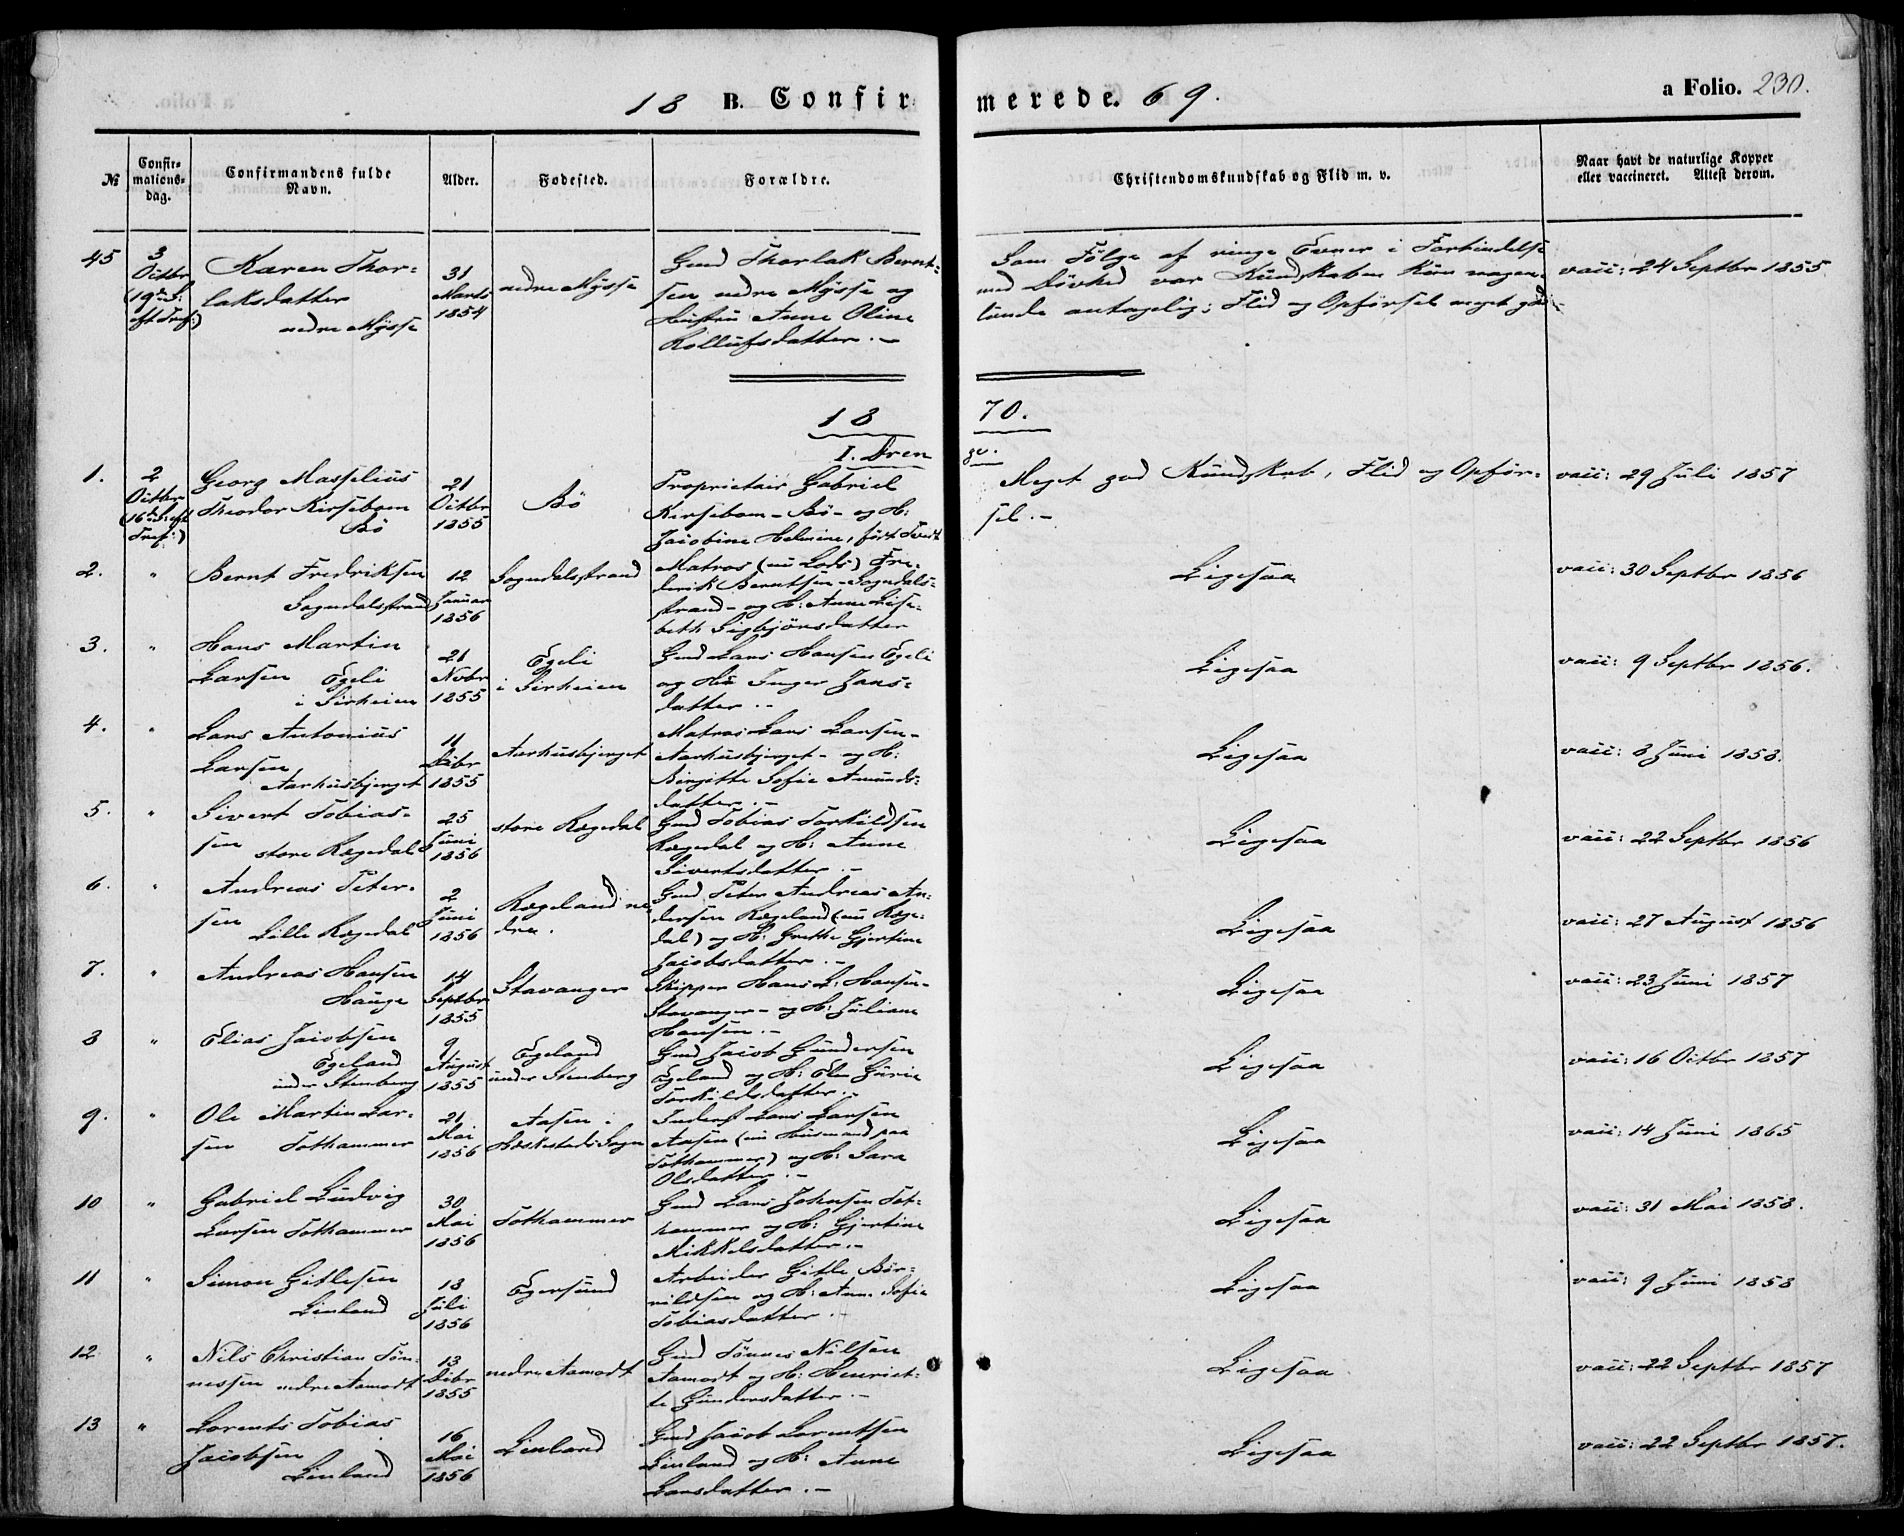 18 B. Confirmerede. 69.
a Folio. 230.
№
Confir-
mations-
dag.
Confirmandens fulde
Navn.
Alder.
Fødested.
Forældre.
Christendomskundskab og Flid m. v.
Naar havt de naturlige Kopper
eller vaccineret. Attest derom.
45
3
Octbr
(19de S:
eft Tref:)
Karen Thor-
laksdatter
nedre Mysse
31
Marts
1854
nedre Mysse
Gmd Thorlak Bernt-
sen nedre Mysse og
Hustru Anne Oline
Rollufsdatter. –
Som Følge af ringe Evner i Forbindelse
med Døvhed var Kundskaben kun nogen-
lunde antagelig; Flid og Opførsel meget god. –
vacc: 24 Septbr 1855
18 70.
I. Drenge.
1.
2
Octbr
(16de S: eft
Tref:)
Georg Masselius
Theodor Kirsebom
Bö
21
Octbr
1855
Bö
Proprietair Gabriel
Kirsebom – Bö – og H:
Jacobine Helmine, født Tvedt
Meget god Kundskab, Flid og Opfør-
sel. –
vacc: 29 Juli 1857
2.
"
Bernt Fredriksen
Sogndalsstrand
12
Januar
1856
Sogndalsstrand
Matros (nu Lods) Fre-
derik Berntsen – Sogndals-
strand – og H: Anne Lise-
beth Sigbjörnsdatter
Ligesaa
vacc: 30 Septbr 1856
3.
"
Hans Martin
Larsen Egeli
i Sirheien
21
Novbr
1855
Egeli
i Sirheien
Gmd Lars Hansen Egeli
og Hu Inger Jans-
datter. –
Ligesaa
vacc: 9 Septbr 1856.
4.
"
Lars Antonius
Larsen
Aarhusbjerget
11
Decbr
1855
Aarhusbjerget
Matros Lars Larsen –
Aarhusbjerget – og H:
Birgitte Sofie Amunds-
datter. –
Ligesaa
vacc: 8 Juni 1858.
5.
"
Sivert Tobias-
sen store Rægedal
25
Juni
1856
store Rægedal
Gmd Tobias Torkildsen
Rægedal og H: Anne
Sivertsdatter. –
Ligesaa
vacc: 22 Septbr 1856
6.
"
Andreas Peter-
sen
Lille Rægedal
2
Juni
1856
Rægeland ne-
dre.
Gmd Peter Andreas An-
dersen Rægeland (nu Ræge-
dal) og H: Grethe Gjertine
Jacobsdatter. –
Ligesaa
vacc: 27 August 1856
7.
"
Andreas Hansen
Hauge
14
Septbr
1855
Stavanger
Skipper Hans L: Hansen –
Stavanger – og H: Juliane
Hansen. –
Ligesaa
vacc: 23 Juni 1857
8
"
Elias Jacobsen
Egeland
under Stenberg
9
August
1855
Egeland
under Stenberg
Gmd Jacob Gundersen
Egeland og H: Elen Gurie
Torkildsdatter. –
Ligesaa
vacc: 16 Octbr 1857
9.
"
Ole Martin Lar-
sen Tothammer
21
Mai
1856
Aasen i
Heskestads Sogn
Inderst Lars Larsen
Aasen (nu Husmand paa
Tothammer) og H: Sara
Olsdatter. –
Ligesaa
vacc: 14 Juni 1865
10
"
Gabriel Ludvig
Larsen Tothammer
30
Mai
1856
Tothammer
Gmd Lars Johnsen Tot-
hammer og H: Gjertine
Mikkelsdatter. –
Ligesaa
vacc: 31 Mai 1858.
11
"
Simon Gitlesen
Linland
18
Juli
1856
Egersund
Arbeider Gitle Bör-
vildsen og H: Ane Sofie
Tobiasdatter. –
Ligesaa
vacc: 9 Juni 1858
12
"
Nils Christian Tön-
nessen nedre Aamodt
13
Decbr
1855
nedre Aamodt
Gmd Tönnes Nilsen
Aamodt og H: Henriet-
te Gundersdatter. –
Ligesaa
vacc: 22 Septbr 1857
13
"
Lorents Tobias
Jacobsen
Linland
16
Mai
1856
Linland
Gmd Jacob Lorentsen
Linland og H: Anne
Larsdatter. –
Ligesaa
vacc: 22 Septbr 1857.